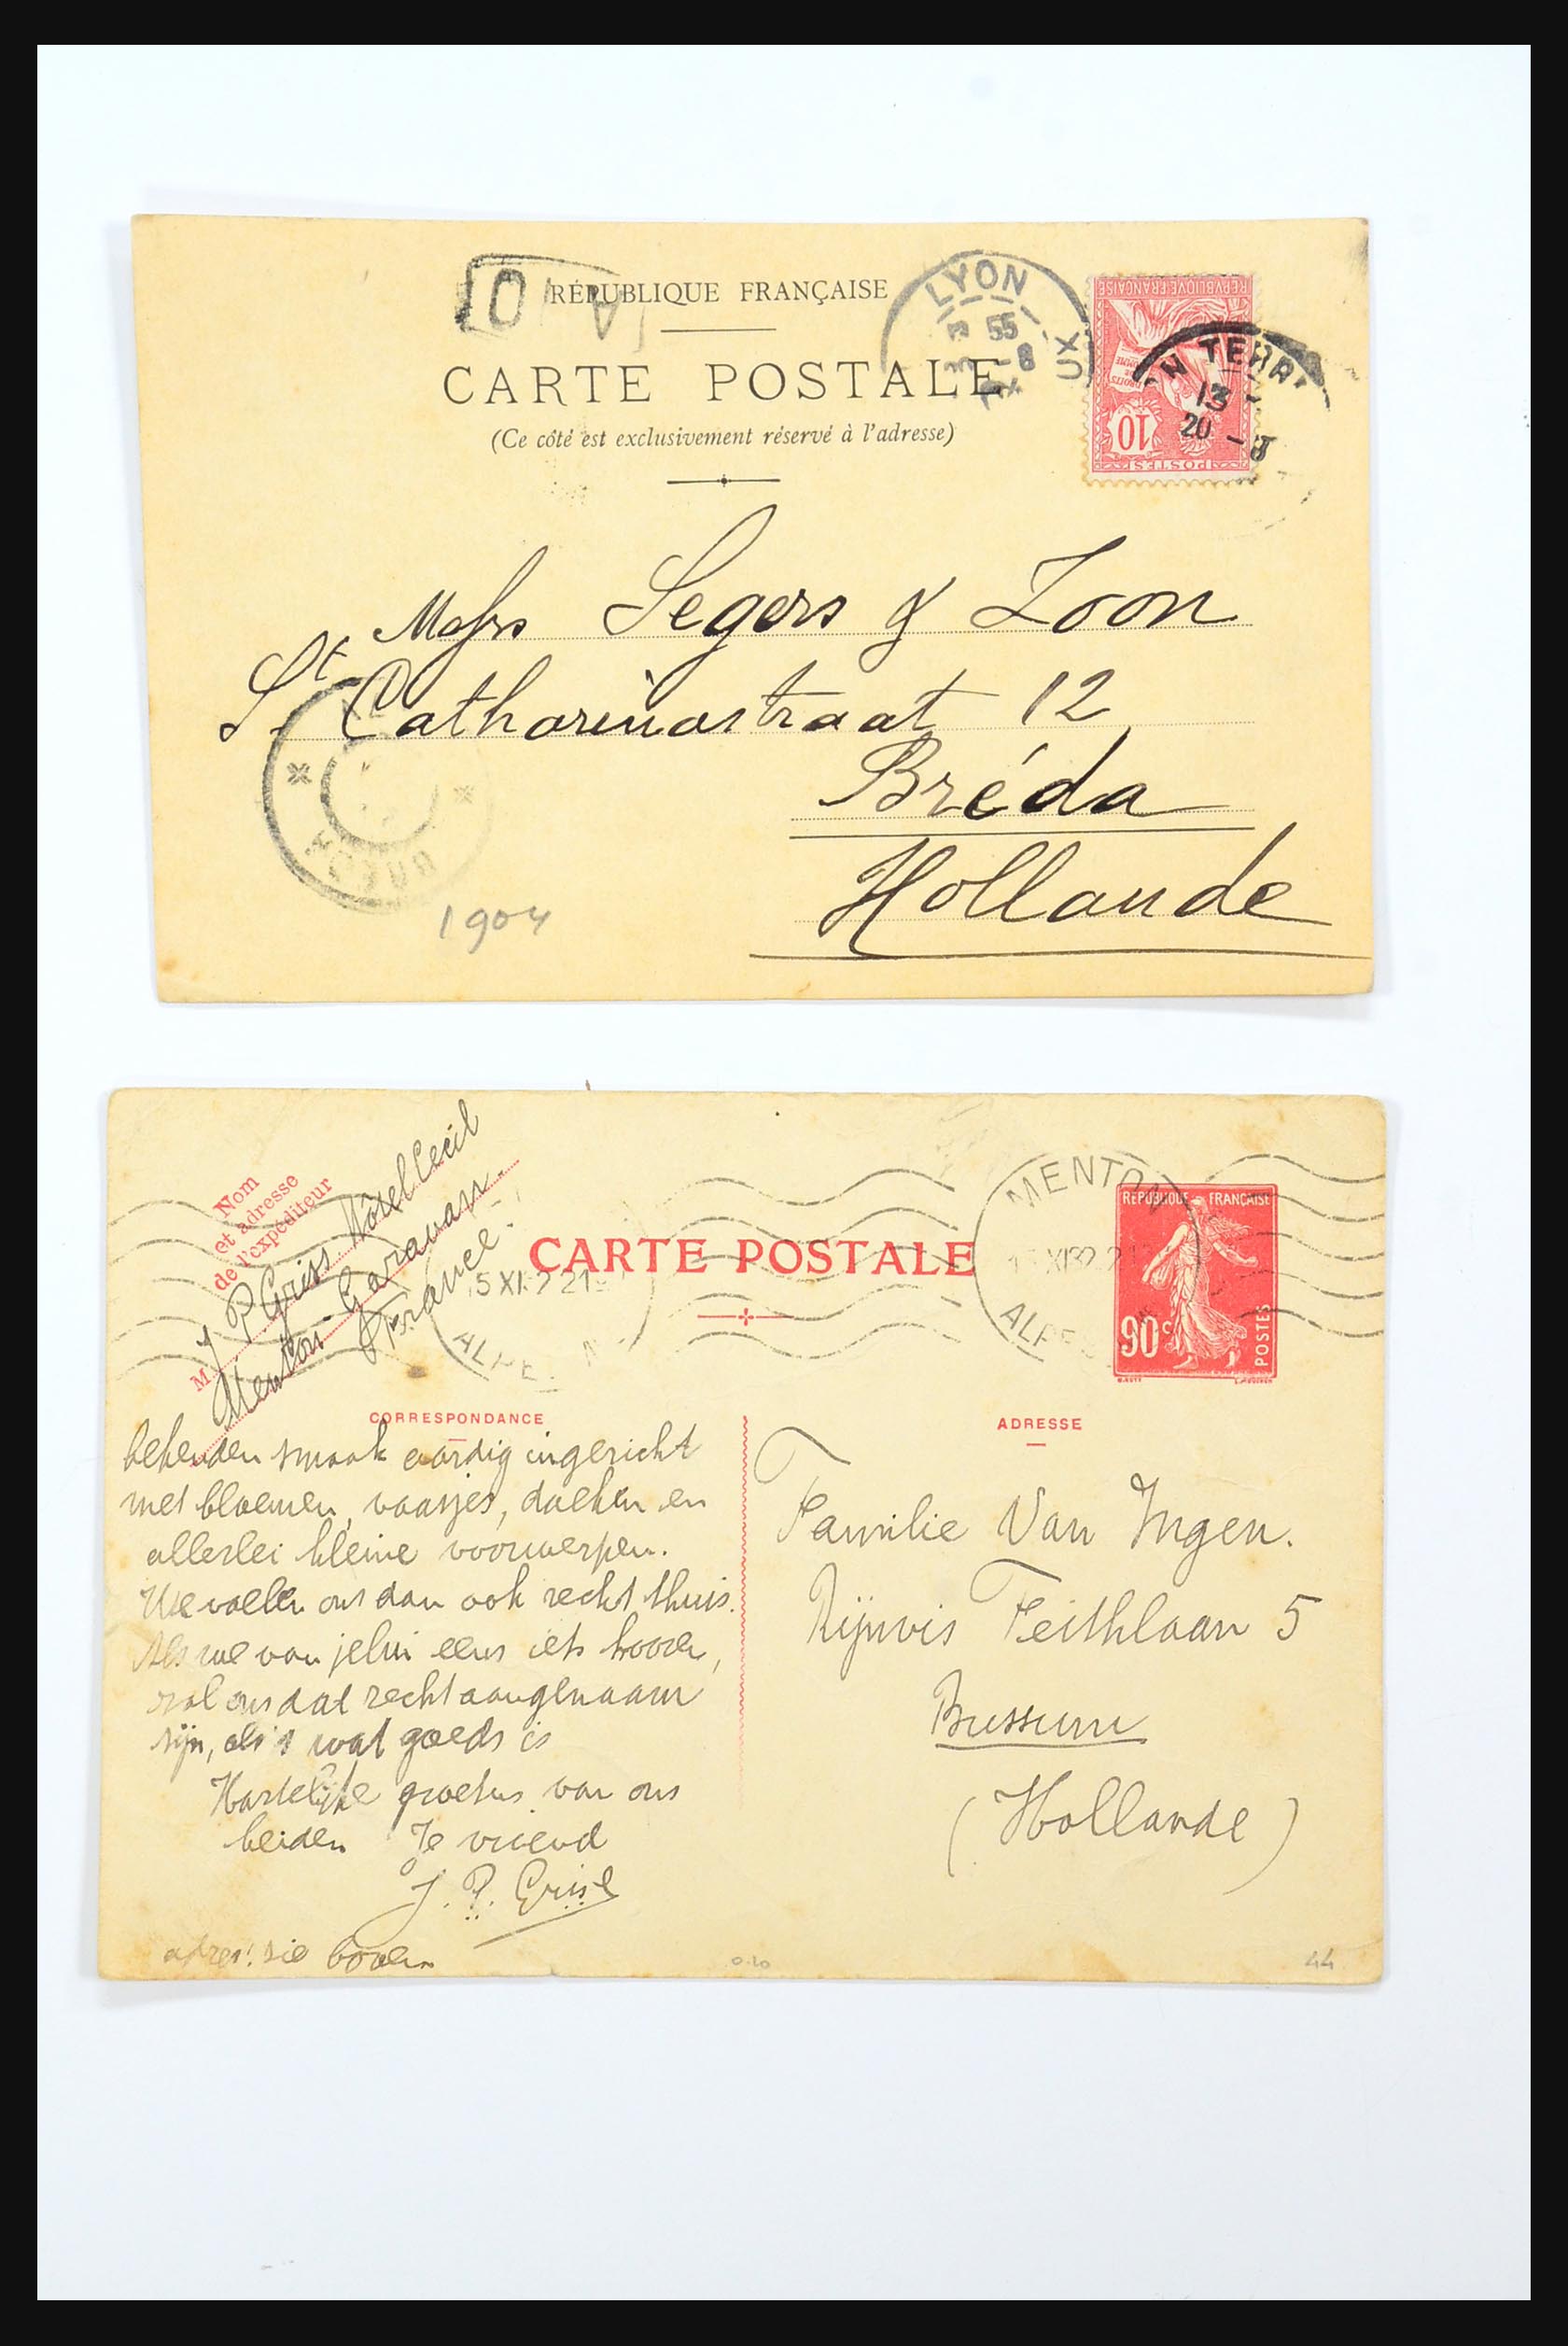 RÉPUBLIQUE FRANÇAISE
CARTE POSTALE
(Ce côté est exclusivement réservé à l'adresse)
LYON
55
UX
REPVBLIQVE FRANÇAISE
DROITS DE HOMME
10
POSTES
13
20
Messrs Segers & Zoon
St. Catharinastraat 12
Bréda
Hollande
1904
Nom
et adresse
de l'expéditeur
M J P Griss Hôtel Cecil
Menton Garavan
France
CARTE POSTALE
5 XI 2 21
ALPE
MENTON
XI 32 2
ALPE
REPUBLIQUE FRANÇAISE
90c
POSTES
CORRESPONDANCE
ADRESSE
bekenden smaak aardig ingericht
met bloemen, vaasjes, doeken en
allerlei kleine voorwerpen.
We voelen ons dan ook recht thuis.
Als we van jelui eens iets hooren,
zal ons dat recht aangenaam
zijn, als 't wat goeds is
Hartelijke groeten van ons
beiden Je vriend
J. P. Grisé
adres: zie boven
Familie Van Ingen.
Rijnvis Feithlaan 5
Bussum
(Hollande)
0.20
44